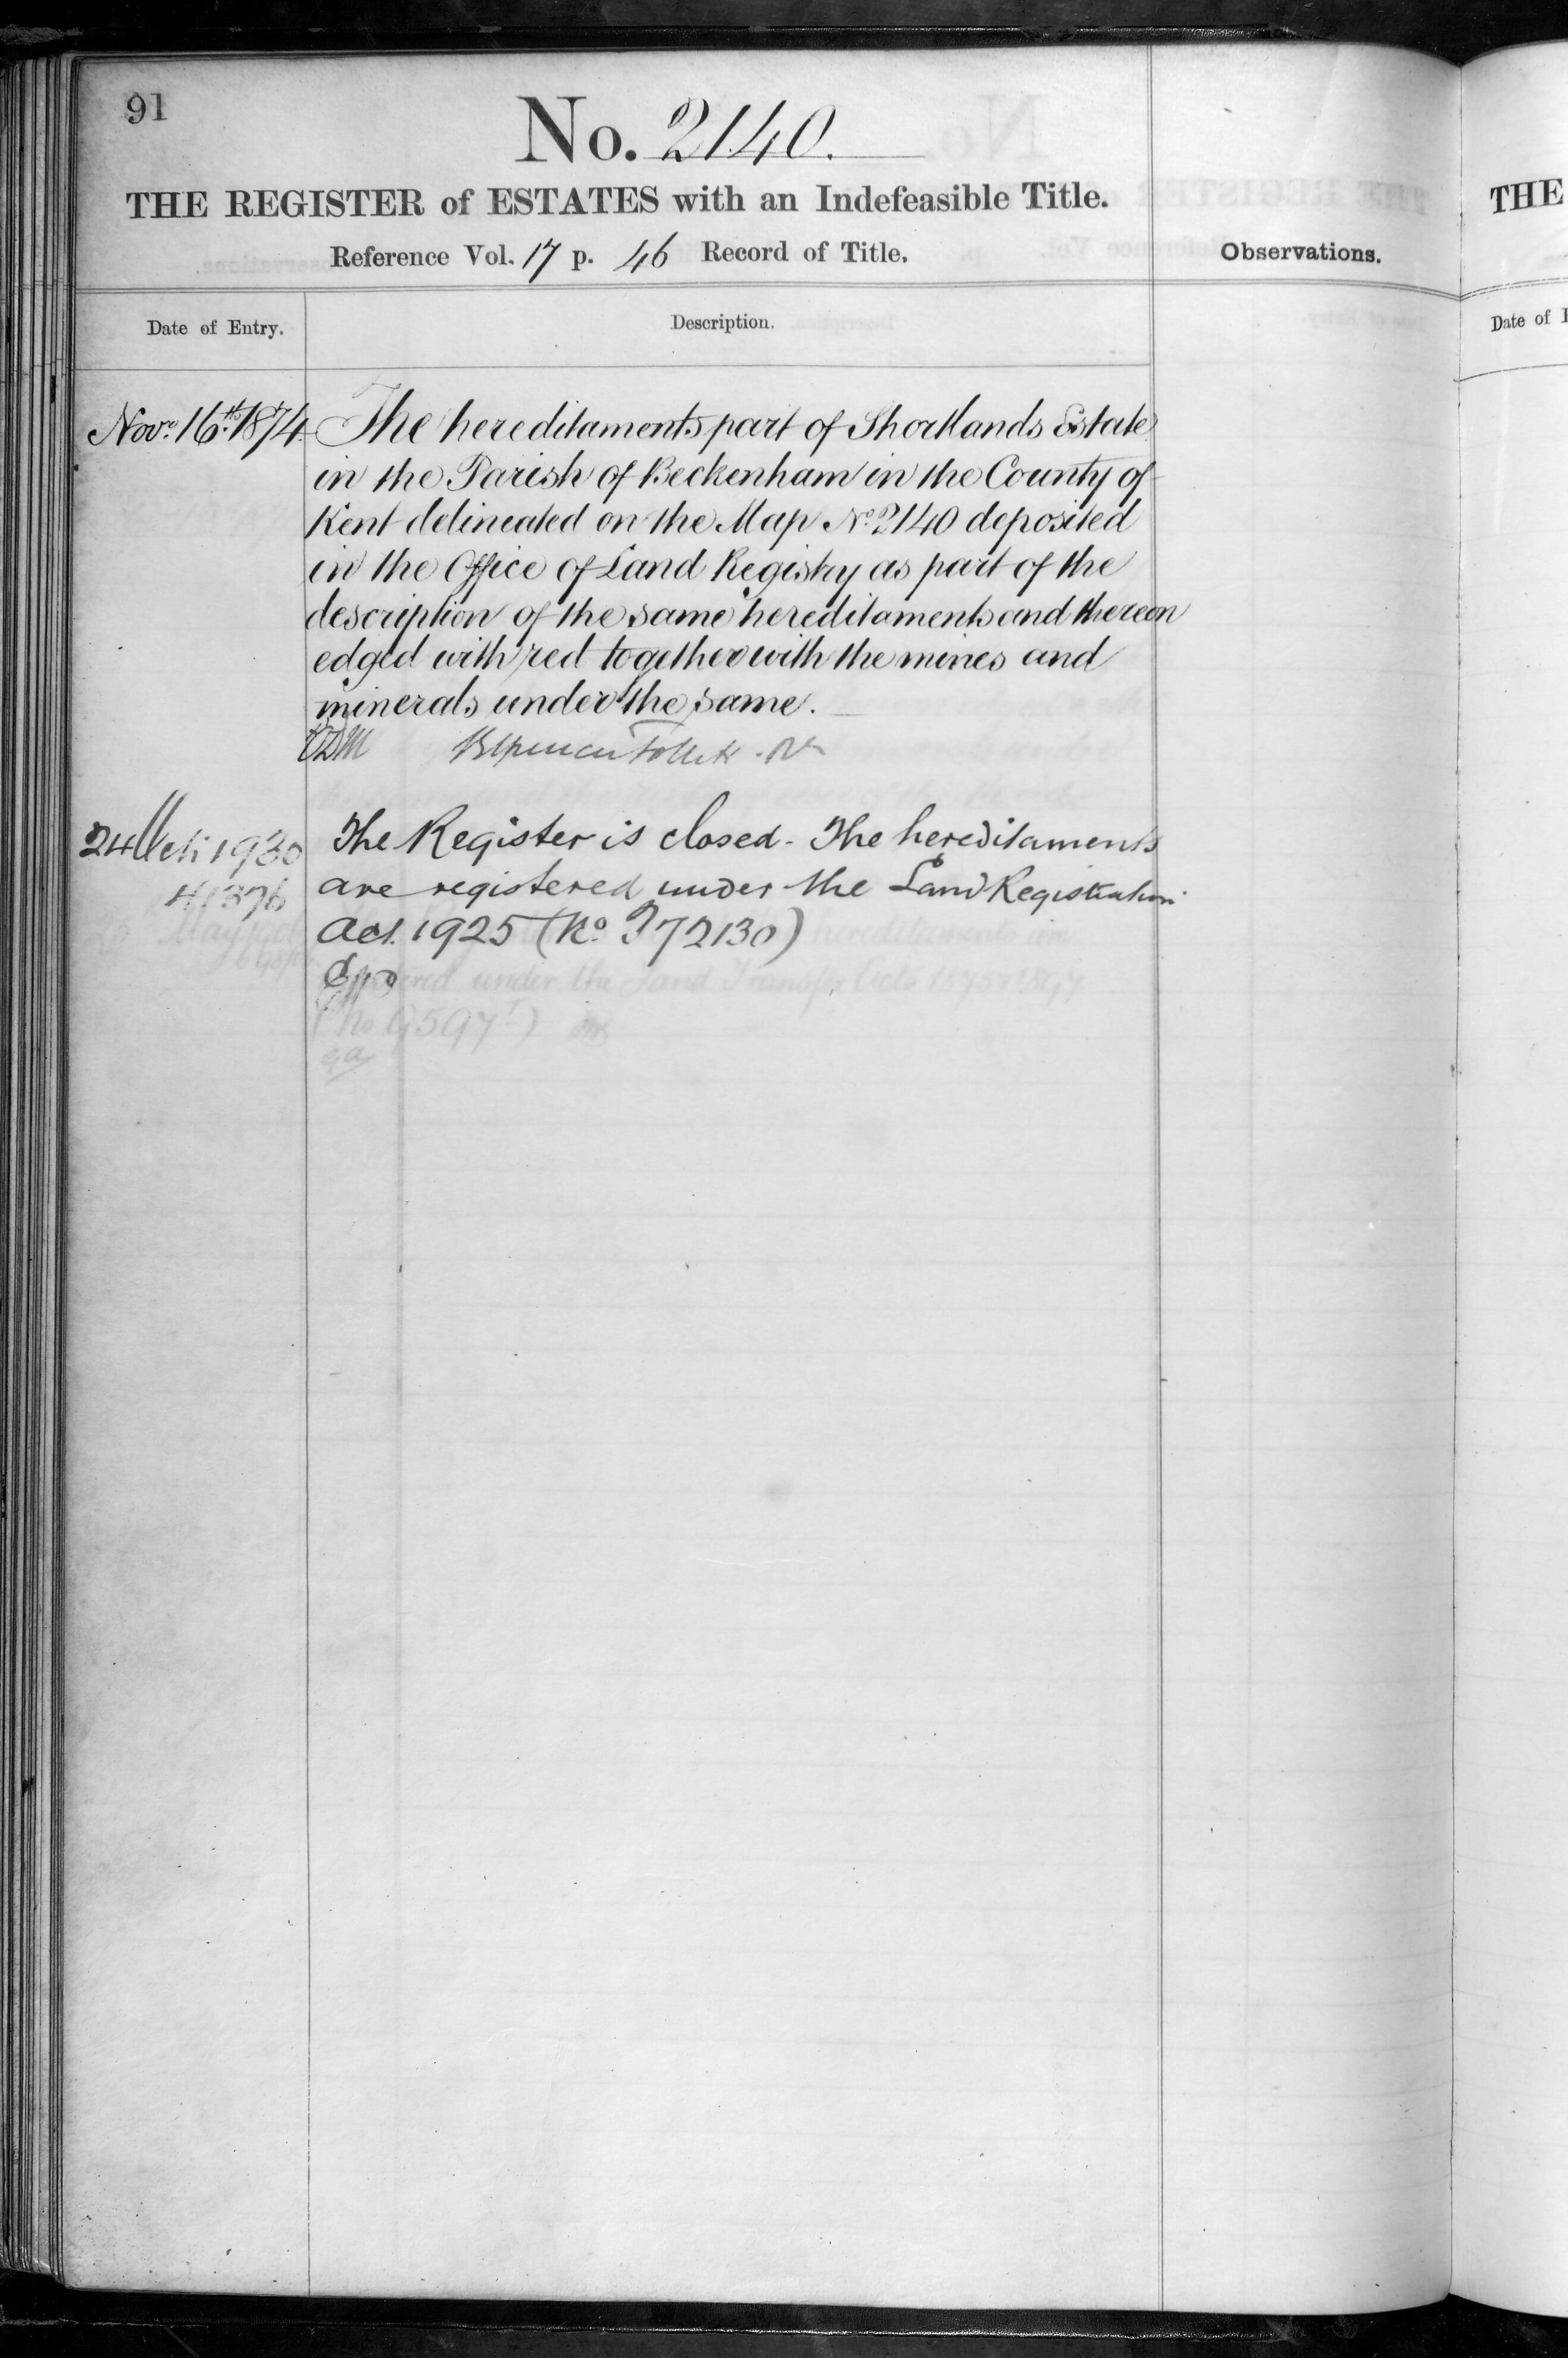 91
No. 2140.
THE REGISTER of ESTATES with an Indefeasible Title.
Reference Vol. 17 p. 46 Record of Title.
Observations.
Date of Entry.
Description.
Novr. 16th. 1874
The hereditaments part of Shortlands Estate
in the Parish of Beckenham in the County of
Kent delineated on the Map No. 2140 deposited
in the Office of Land Registry as part of the
description of the same hereditaments and thereon
edged with red together with the mines and
minerals under the same.
24 1930
The Register is closed - The hereditaments
41376
are registered under the Land Registration
Act. 1925 (No. P72130)
THE
Date of